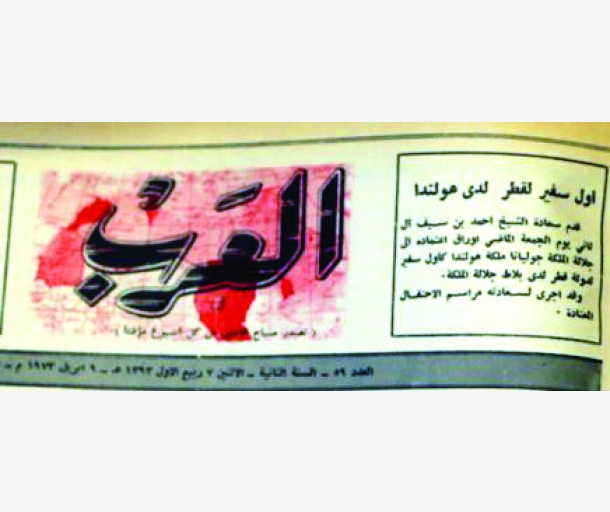 العرب
( تصدر صباح الاثنين من كل اسبوع مؤقتا )
اول سفير لقطر لدى هولندا
قدم سعادة الشيخ احمد بن سيف ال
ثاني يوم الجمعة الماضي اوراق اعتماده الى
جلالة الملكة جوليانا ملكة هولندا كاول سفير
لدولة قطر لدى بلاط جلالة الملكة .
وقد اجرى لسعادته مراسم الاحتفال
المعتادة .
العدد ٥٩ ــ السنة الثانية ــ الاثنين ٢ ربيع الاول ١٣٩٣ هـ ــ ٩ ابريل ١٩٧٣ م ــ